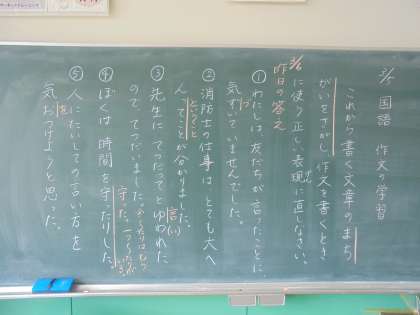 3/5 国語 作文の学習
これから書く文章のまち
がいをさがし作文を書くとき
に使う正しい表現に直しなさい。
3/6
昨日の答え
①わたしは、友だちが言ったことに
気ずいていませんでした。
づ
②消防士の仕事はとても大へ
んってことが分かりました。
ということ
③先生にてつだってとゆわれた
言(い)
のでてつだいました。
④ぼくは時間を守ったりした。
守った。
⑤人にたいしての言い方を
気おつけようと思った。
を